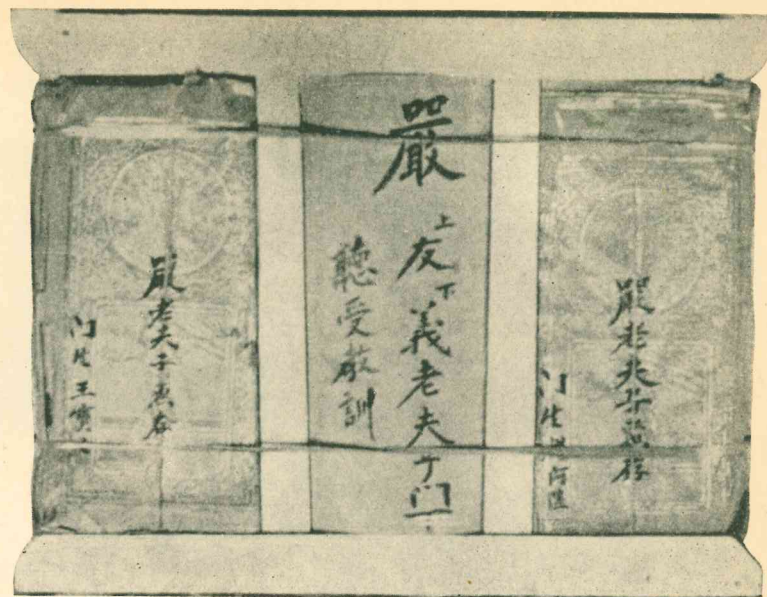 嚴老夫子惠存
门生 阿
嚴
上友下義老夫子门下
聽受教訓
嚴老夫子惠存
门生王寶